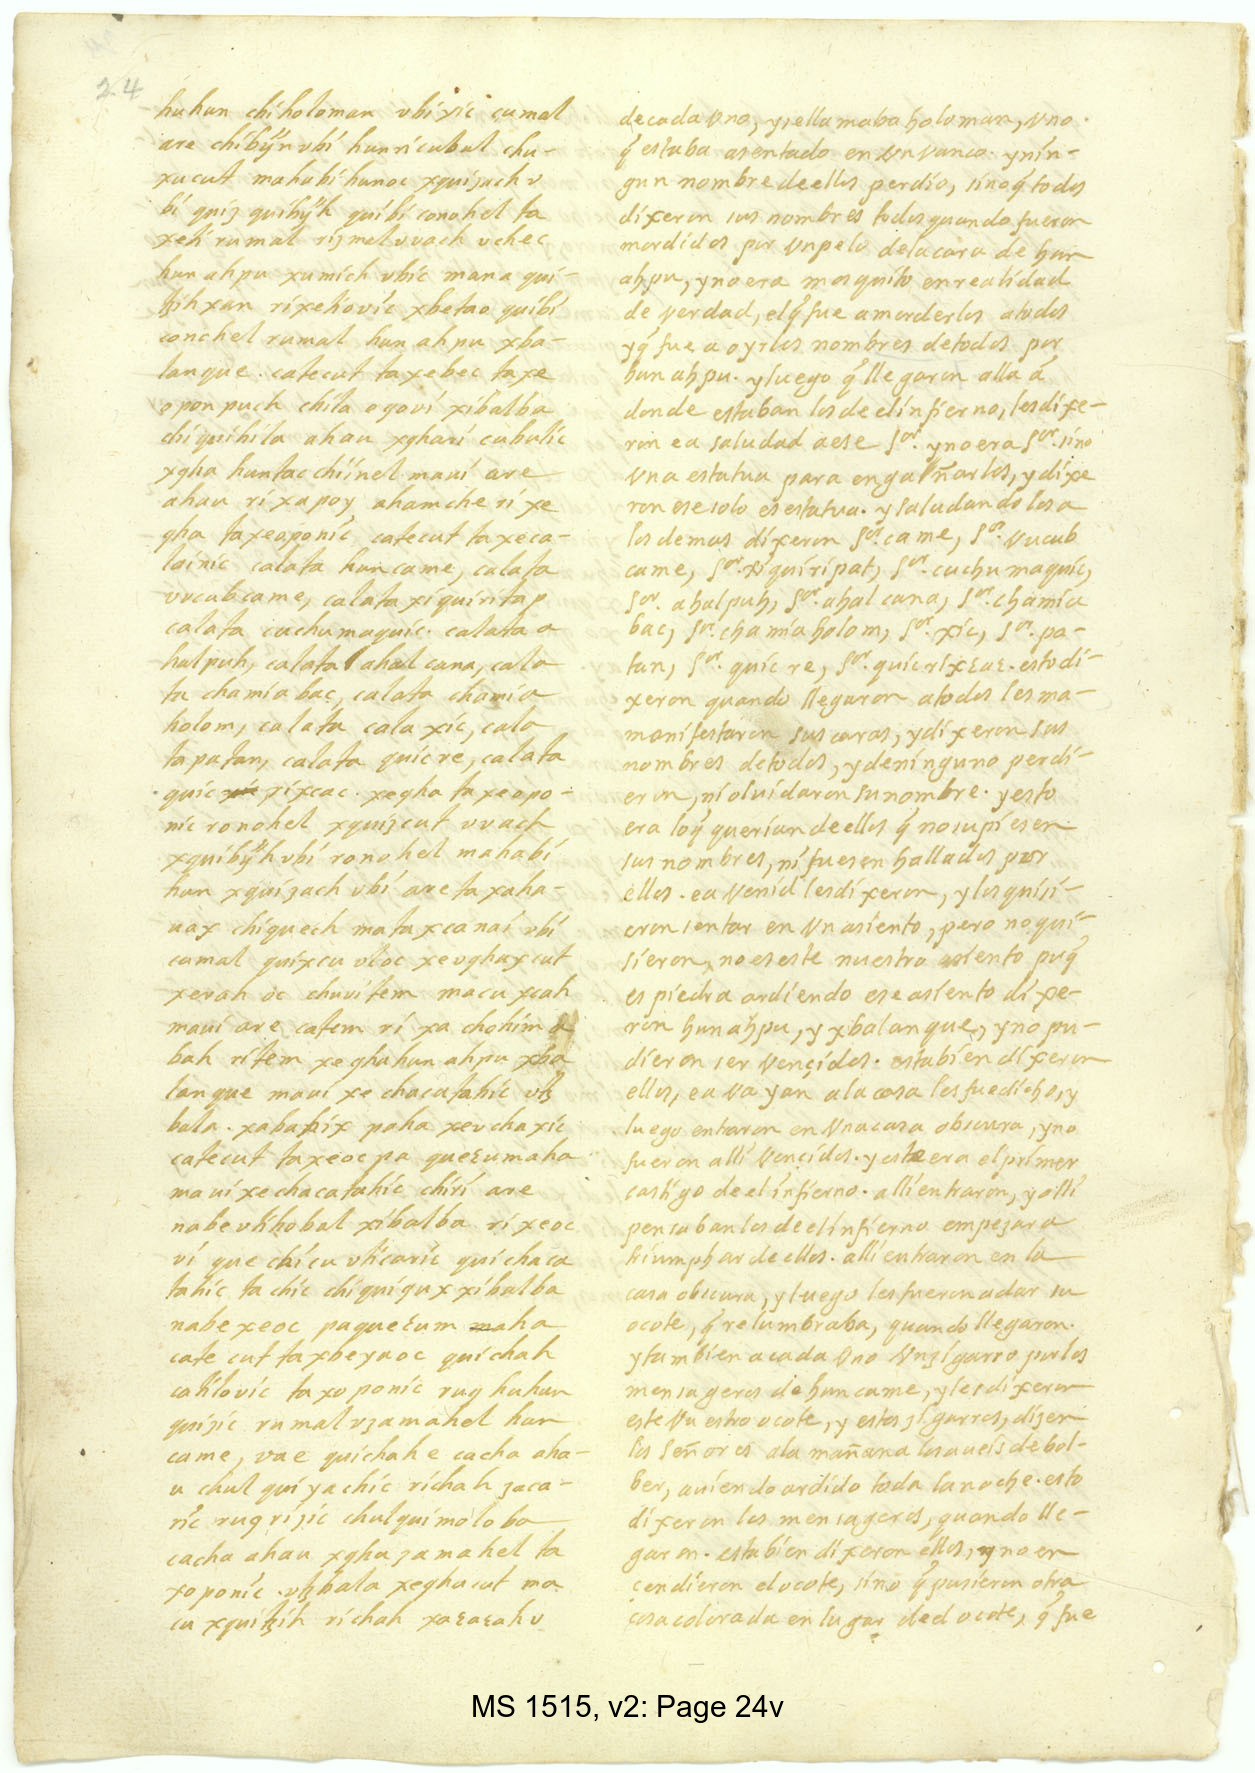 24
huhun chi holoman vbixic cumal
are chibÿn vbi hun ri cubul chu-
xucut mahabi hunoc xquizach v
bi quiz quibÿh quibi conohel ta
xeti rumal rizmal vvach vchec
hun ahpu xumich vbic mana qui-
tzih xan ri xetiovic xbetao quibi
conohel rumal hun ahpu xba-
lanque. catecut ta xebec ta xe
opon puch chila ogovi xibalba
chiquihila ahau xqhaxi cubulic
xqha huntac chiinel maui are
ahau ri xa poy ahamche ri xe
qha ta xeoponic, catecut ta xeca-
lainic calata huncame, calata
vucubcame, calata xiquiritap
calata cuchumaquic. calata a
halpuh, calata ahal cana, cala
ta chamia bac, calata chamia
holom, calata cala xic, cala
ta patan, calata quicre, calata
quic rixcac. xeqha ta xeopo-
nic ronohel xquizcut vvach
xquibÿh vbi ronohel mahabi
hun xquizach vbi are ta xaha-
uax chiquech mata xcanai vbi
cumal quixcu vloc xevqhaxcut
xerah oc chuvi tem macu xcah
maui are catem ri xa chohim a
bah ri tem xeqha hun ahpu xba
lanque maui xe chacatahic vtz
bala. xabahix pa ha xevchaxic
catecut ta xeoc pa queɛuma ha
maui xe chacatahic chiri are
nabe vtihobal xibalba ri xeoc
vi que chicu vticaric quichaca
tahic ta chic chiquiqux xibalba
nabe xeoc pa queɛum maha
cate cut ta xbeyaoc quichah
catilovic ta xoponic ruq huhun
quizic rumal vzamahel hun
came, vae quichah e cacha aha-
u chul quiyachic richah zaca-
ric ruq rizic chulquimoloba
cacha ahau xqha zamahel ta
xoponic. vtzbala xeqhacut ma
cu xquitzih richah xaɛaɛah v
de cada Vno, y, ella maba holoman, Vno.
q̃ estaba asentado en Vn Vanco. y nin-
gun nombre de ellos perdio, sino q̃ todos
dixeron sus nombres todos quando fueron
mordidos por Vn pelo de la cara de hun
ahpu, y no era mosquito en realidad
de Verdad, el q̃ fue a morderlos a todos
y q̃ fue a oyr los nombres de todos por
hun ahpu. y luego q̃ llegaron alla á
donde estaban los de el infierno, les dixe-
ron ea saludad a ese Sor. y no era Sor. sino
Vna estatua para engañarlos, y dixe
ron ese solo es estatua. y saludandolos a
los demas dixeron Sor. came, Sor. Vucub
came, Sor. Xiquiripat, Sor. cuchumaquic,
Sor. ahalpuh, Sor. ahal cana, Sor. chamia
bac, Sor. chamia holom, Sor. xic, Sor. pa-
tan, Sor. quic re, Sor. quicrixɛaɛ. esto di-
xeron quando llegaron a todos les ma-
manifestaron sus caras, y dixeron sus
nombres de todos, y de ninguno perdi-
eron, ni oluidaron su nombre. y esto
era lo q̃ querian de ellos q̃ no supiesen
sus nombres, ni fuesen hallados por
ellos. ea Venid les dixeron, y los quisi-
eron sentar en Vn asiento, pero no qui-
sieron, no es este nuestro asiento puq̃
es piedra ardiendo ese asiento dixe-
ron hun ahpu, y xbalanque, y no pu-
dieron ser Vençidos. esta bien dixeron
ellos, ea Vayan a la casa les fue dicho, y
luego entraron en Vna casa obscura, y no
fueron alli Vençidos. y este era el primer
castigo de el infierno. alli entraron, y alli
pensaban los de el infierno empezar a
triumphar de ellos. alli entraron en la
casa obscura, y luego les fueron a dar su
ocote, q̃ relumbraba, quando llegaron.
y tambien a cada Vno Vn zigarro por los
mensageros de hun came, y les dixeron
este Vuestro ocote, y estos zigarros, dizen
los Señores a la mañana los aueis de bol-
ber, auiendo ardido toda la noche. esto
dixeron los mensageros, quando lle-
garon. esta bien dixeron ellos, y no en
cendieron el ocote, sino q̃ pusieron otra
cosa colorada en lugar de el ocote, q̃ fue
MS 1515, v2: Page 24v